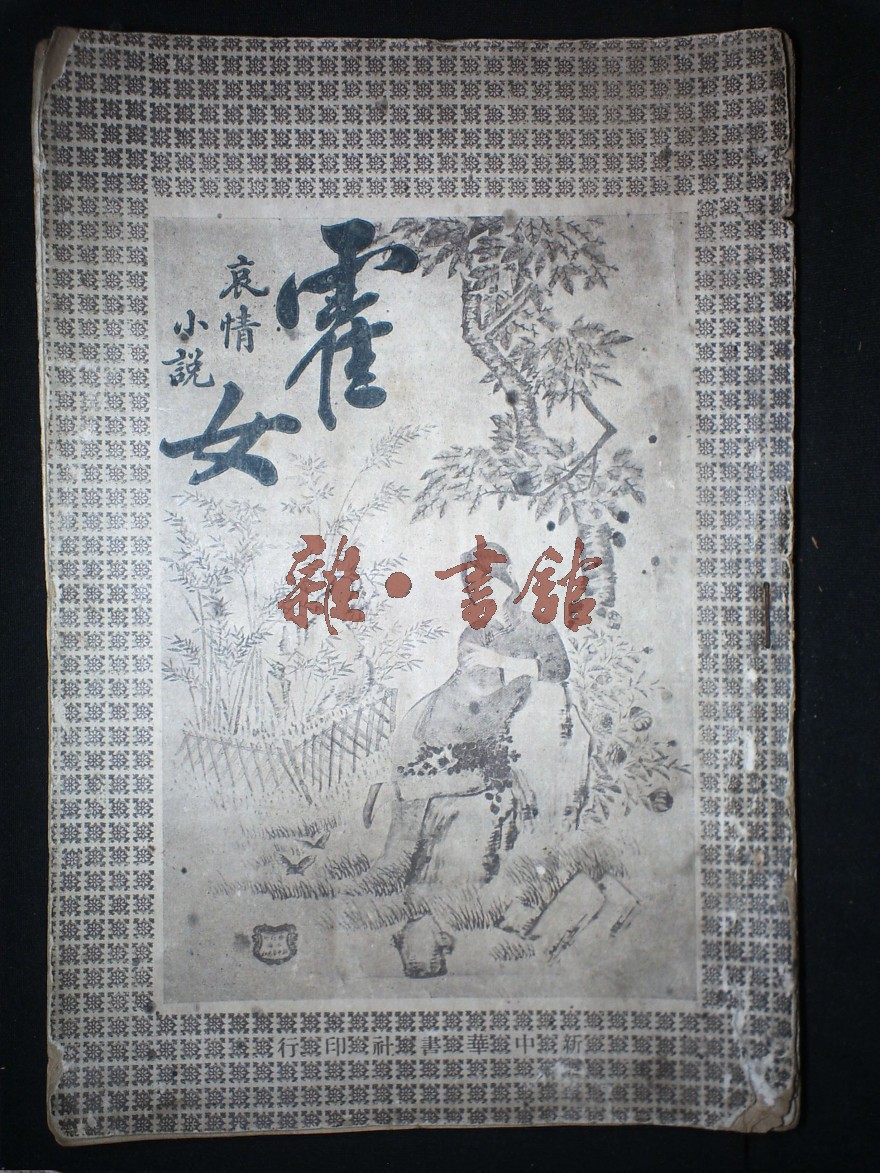 霍女
哀情
小說
雜·書館
新中華書社印行